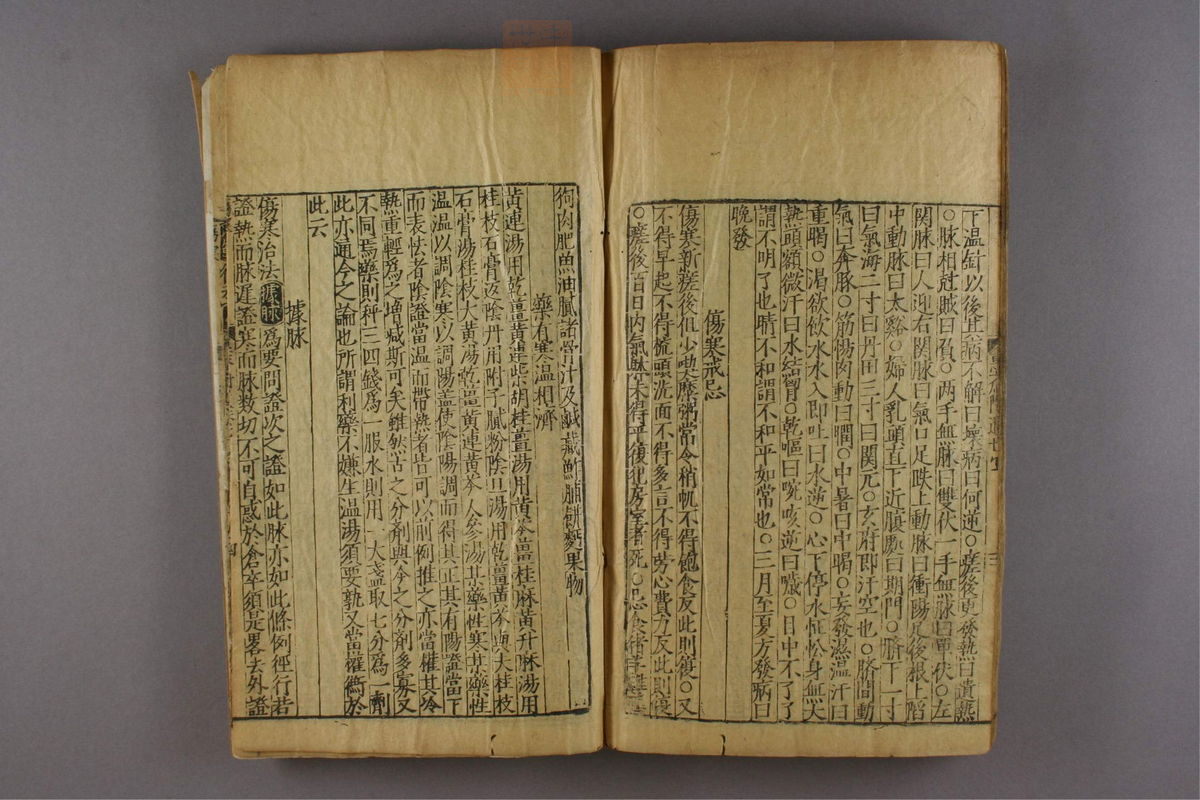 下温針以後止病不解曰壞病曰何逆○瘥後更發熱曰遺熱
○脉相冦賊曰殞○两手無脉曰雙伏一手無脉曰單伏○左
関脉曰人迎右関脉曰氣口足趺上動脉曰衝陽足後根上陷
中動脉曰太谿○婦人乳頭直下近臍處曰期門○臍下一寸
曰氣海二寸曰丹田三寸曰関元○玄府即汗空也○臍間動
氣曰奔豚○筋惕肉動曰瞤○中暑曰中暍○妄發濕温汗曰
重暍○渴欲飲水水入即吐曰水逆○心下停水怔忪身無大
熱頭額微汗曰水結胷○乾嘔曰啘咳逆曰噦○目中不了了
謂不明了也晴不和謂不和平如常也○三月至夏方發病曰
晚發
傷寒戒忌
傷寒新瘥後但少喫糜粥常令稍飢不得飽食反此則復○又
不得早起不得梳頭洗面不得多言不得劳心費力反此則復
○瘥後百日内氣躰未得平復犯房室者死○忌食猪羊
狗肉肥魚油膩諸骨汁及鹹藏鮓脯餅麪果物
藥有寒温相濟
黄連湯用乾薑黄連柴胡桂薑湯用黄芩薑桂麻黄升麻湯用
桂枝石膏返陰丹用附子膩粉陰旦湯用乾薑黄芩與大桂枝
石膏湯桂枝大黄湯乾薑黄連黄芩人參湯某藥性寒某藥性
温温以調陰寒以調陽盖使陰陽調而得其正其有陽證當下
而表怯者陰證當温而帶熱者皆可以前例推之亦當權其冷
熱重輕爲之增減斯可矣雖然古之分劑與今之分劑多寡又
不同焉藥則秤三四錢爲一服水則用一大盞取七分爲一劑
此亦通今之論也所謂利藥不嫌生温湯須要熟又當權衡於
此云
據脉
傷寒治法據脉爲要問證次之證如此脉亦如此條例徑行若
證熱而脉遲證寒而脉数切不可自惑於倉卒須是畧去外證